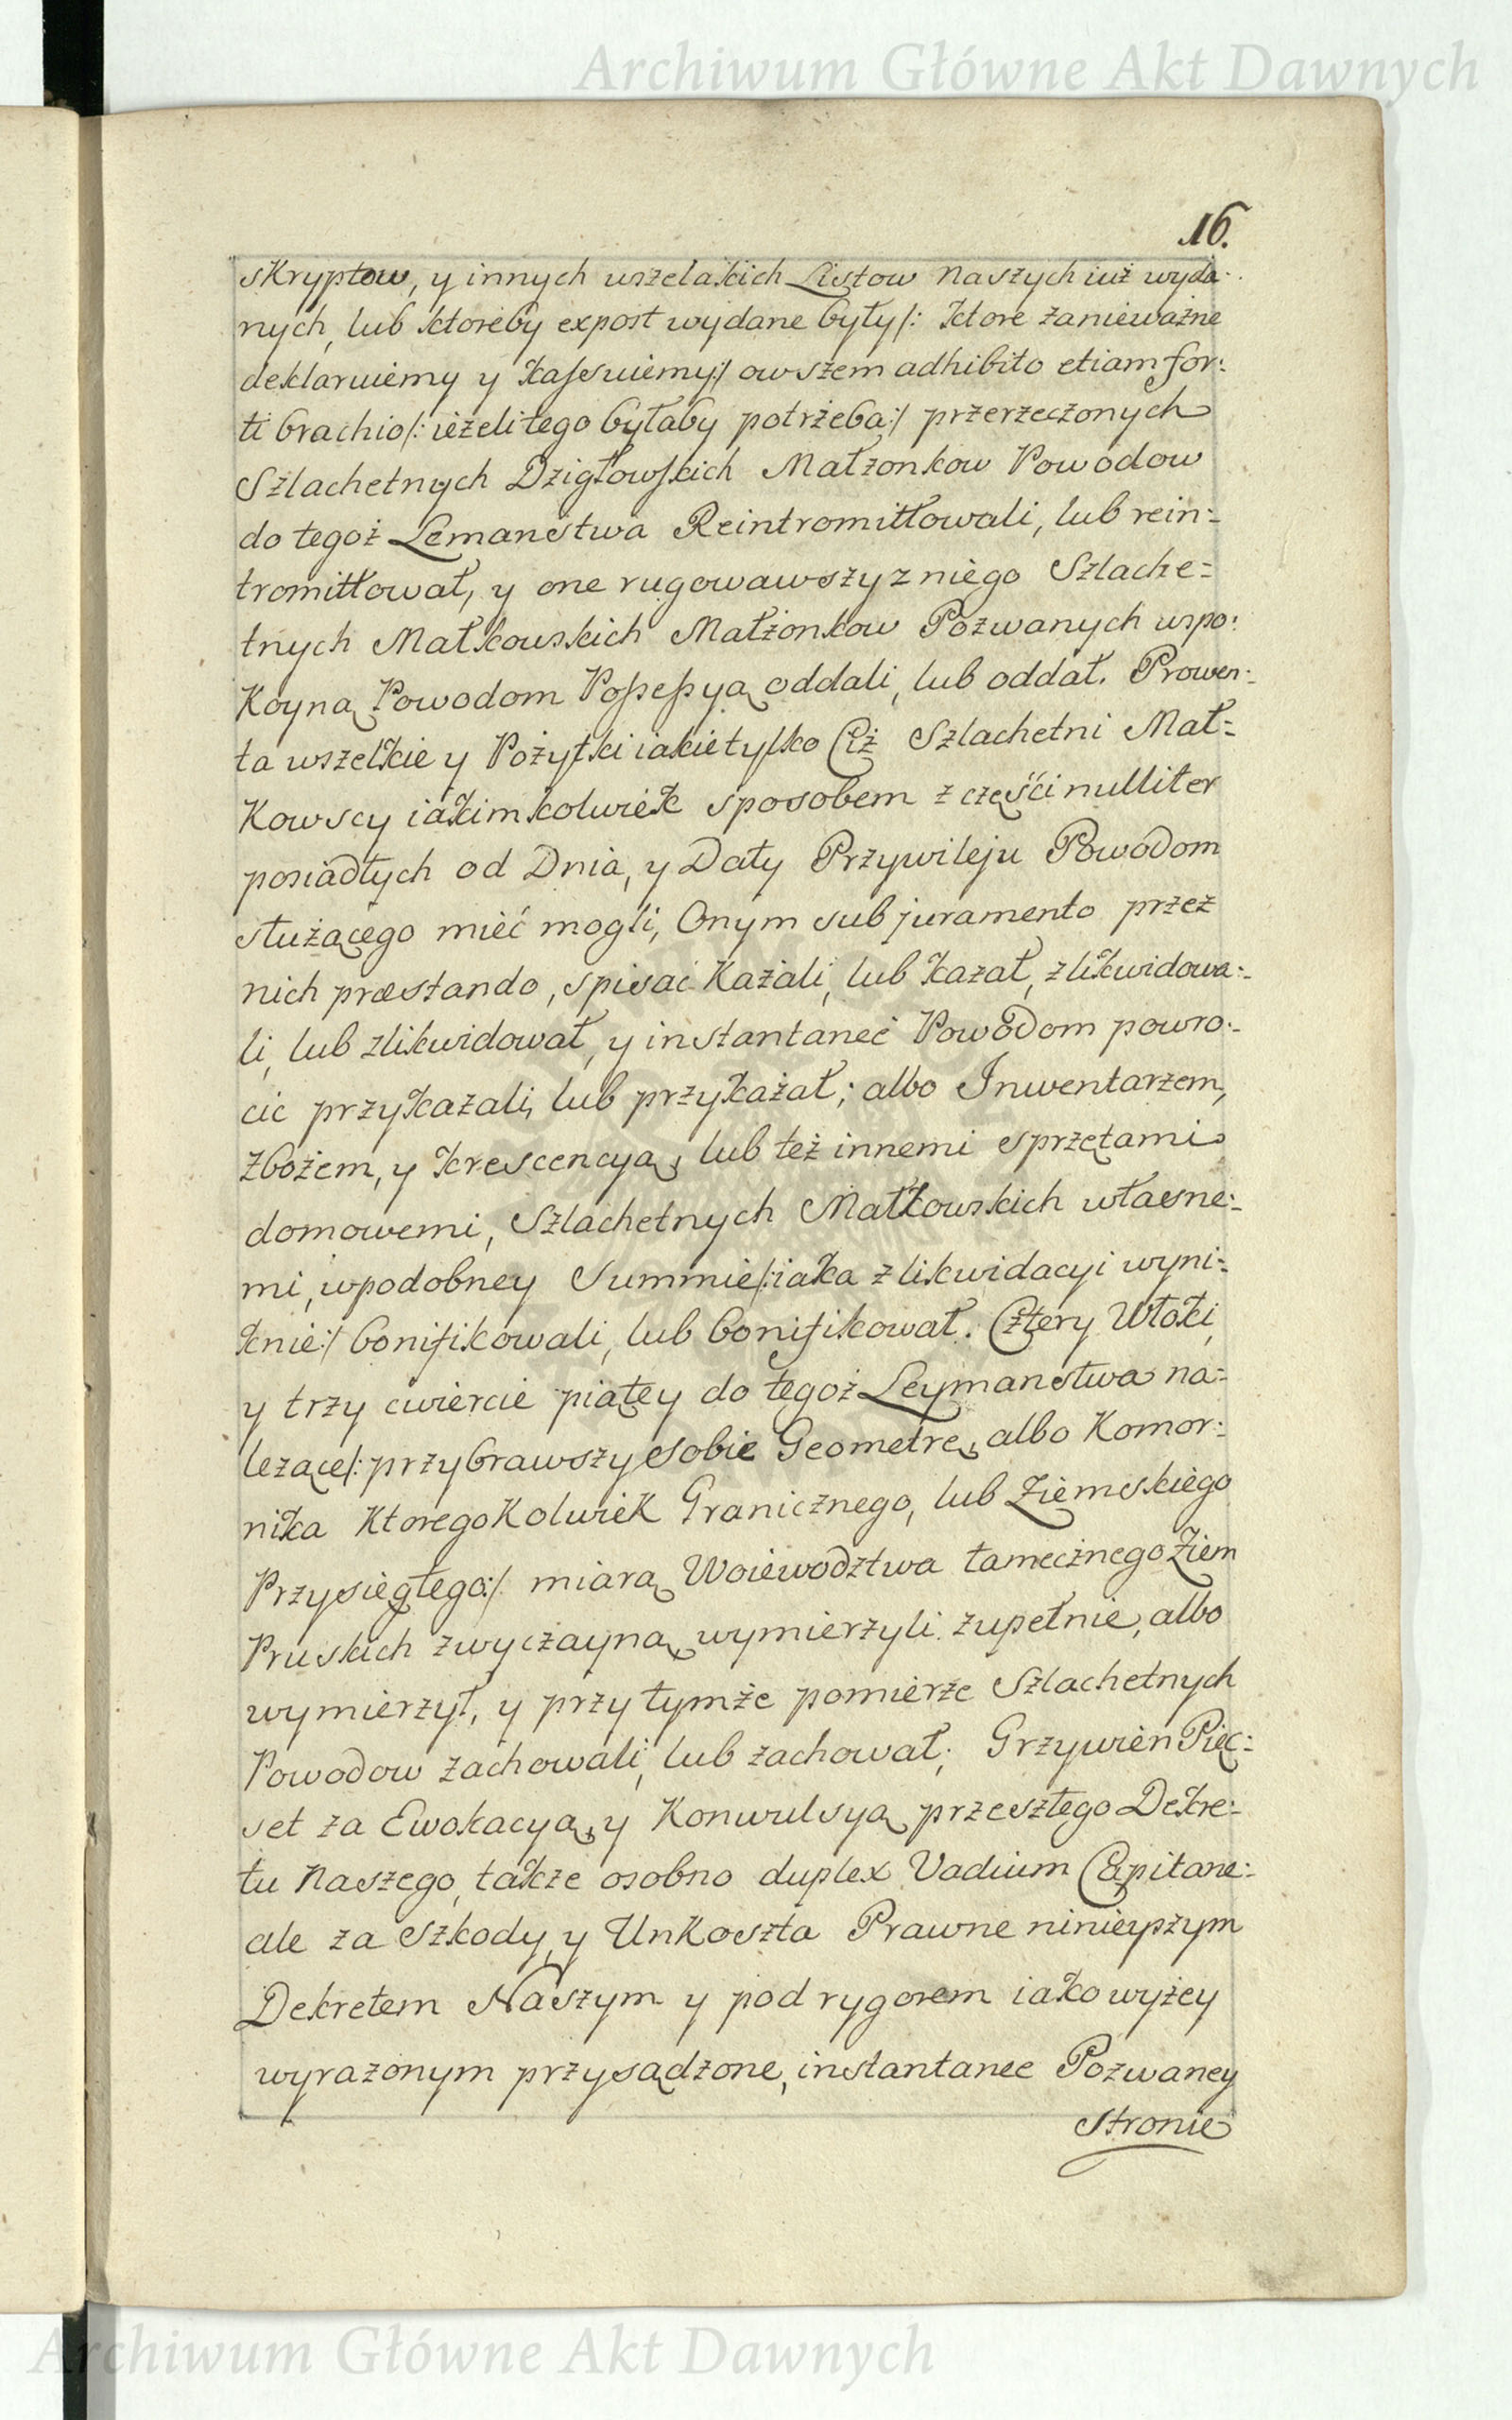 Archiwum Główne Akt Dawnych
16.
skryptow, y innych wszelakich Listow naszych iuż wyda:
nych, lub ktoreby expost wydane były /: ktore zanieważne
deklaruiemy y kassuiemy :/ owszem adhibito etiam for:
ti brachio /: ieżeli tego byłaby potrzeba :/ przerzeczonych
Szlachetnych Dzigłowskich Małzonkow Powodow
do tegoż Lemaństwa Reintromittowali, lub rein:
tromittował, y one rugowawszy z niego Szlache=
tnych Małkowskich Małżonkow Pozwanych wspo:
koyną Powodom Possessyą oddali, lub oddał. Prowen:
ta wszelkie y Pożytki iakie tylko Ciż Szlachetni Mał=
kowscy iakimkolwiek sposobem z części nulliter
posiadłych od Dnia, y Daty Przywileju Powodom
służącego mieć mogli, Onym sub juramento przez
nich præstando, spisać kazali, lub kazał, zlikwidowa:
li, lub zlikwidował, y instantanee Powodom powro:
cic przykazali, lub przykazał; albo Inwentarzem,
Zbożem, y krescencyą, lub też innemi sprzętami
domowemi, Szlachetnych Małkowskich własne:
mi, w podobney Summie /: iaka z likwidacyi wyni:
knie :/ bonifikowali, lub bonifikował. Cztery Włoki,
y trzy cwiercie piątey do tegoż Leymanstwa na=
lezące /: przybrawszy sobie Geometrę, albo Komor:
nika ktoregokolwiek Granicznego, lub Ziemskiego
Przysięgłego :/ miarą Woiewodztwa tamecznego Ziem
Pruskich zwyczayną wymierzyli zupełnie, albo
wymierzył, y przy tymże pomierze Szlachetnych
Powodow zachowali, lub zachował; Grzywien Pięc:
set za Ewokacyą, y Konwulsyą przeszłego Dekre:
tu Naszego, takze osobno duplex Vadium Capitane:
ale za Szkody, y Unkoszta Prawne ninieyszym
Dekretem Naszym y pod rygorem iako wyżey
wyrazonym przysądzone, instantanee Pozwaney
Stronie
Archiwum Główne Akt Dawnych